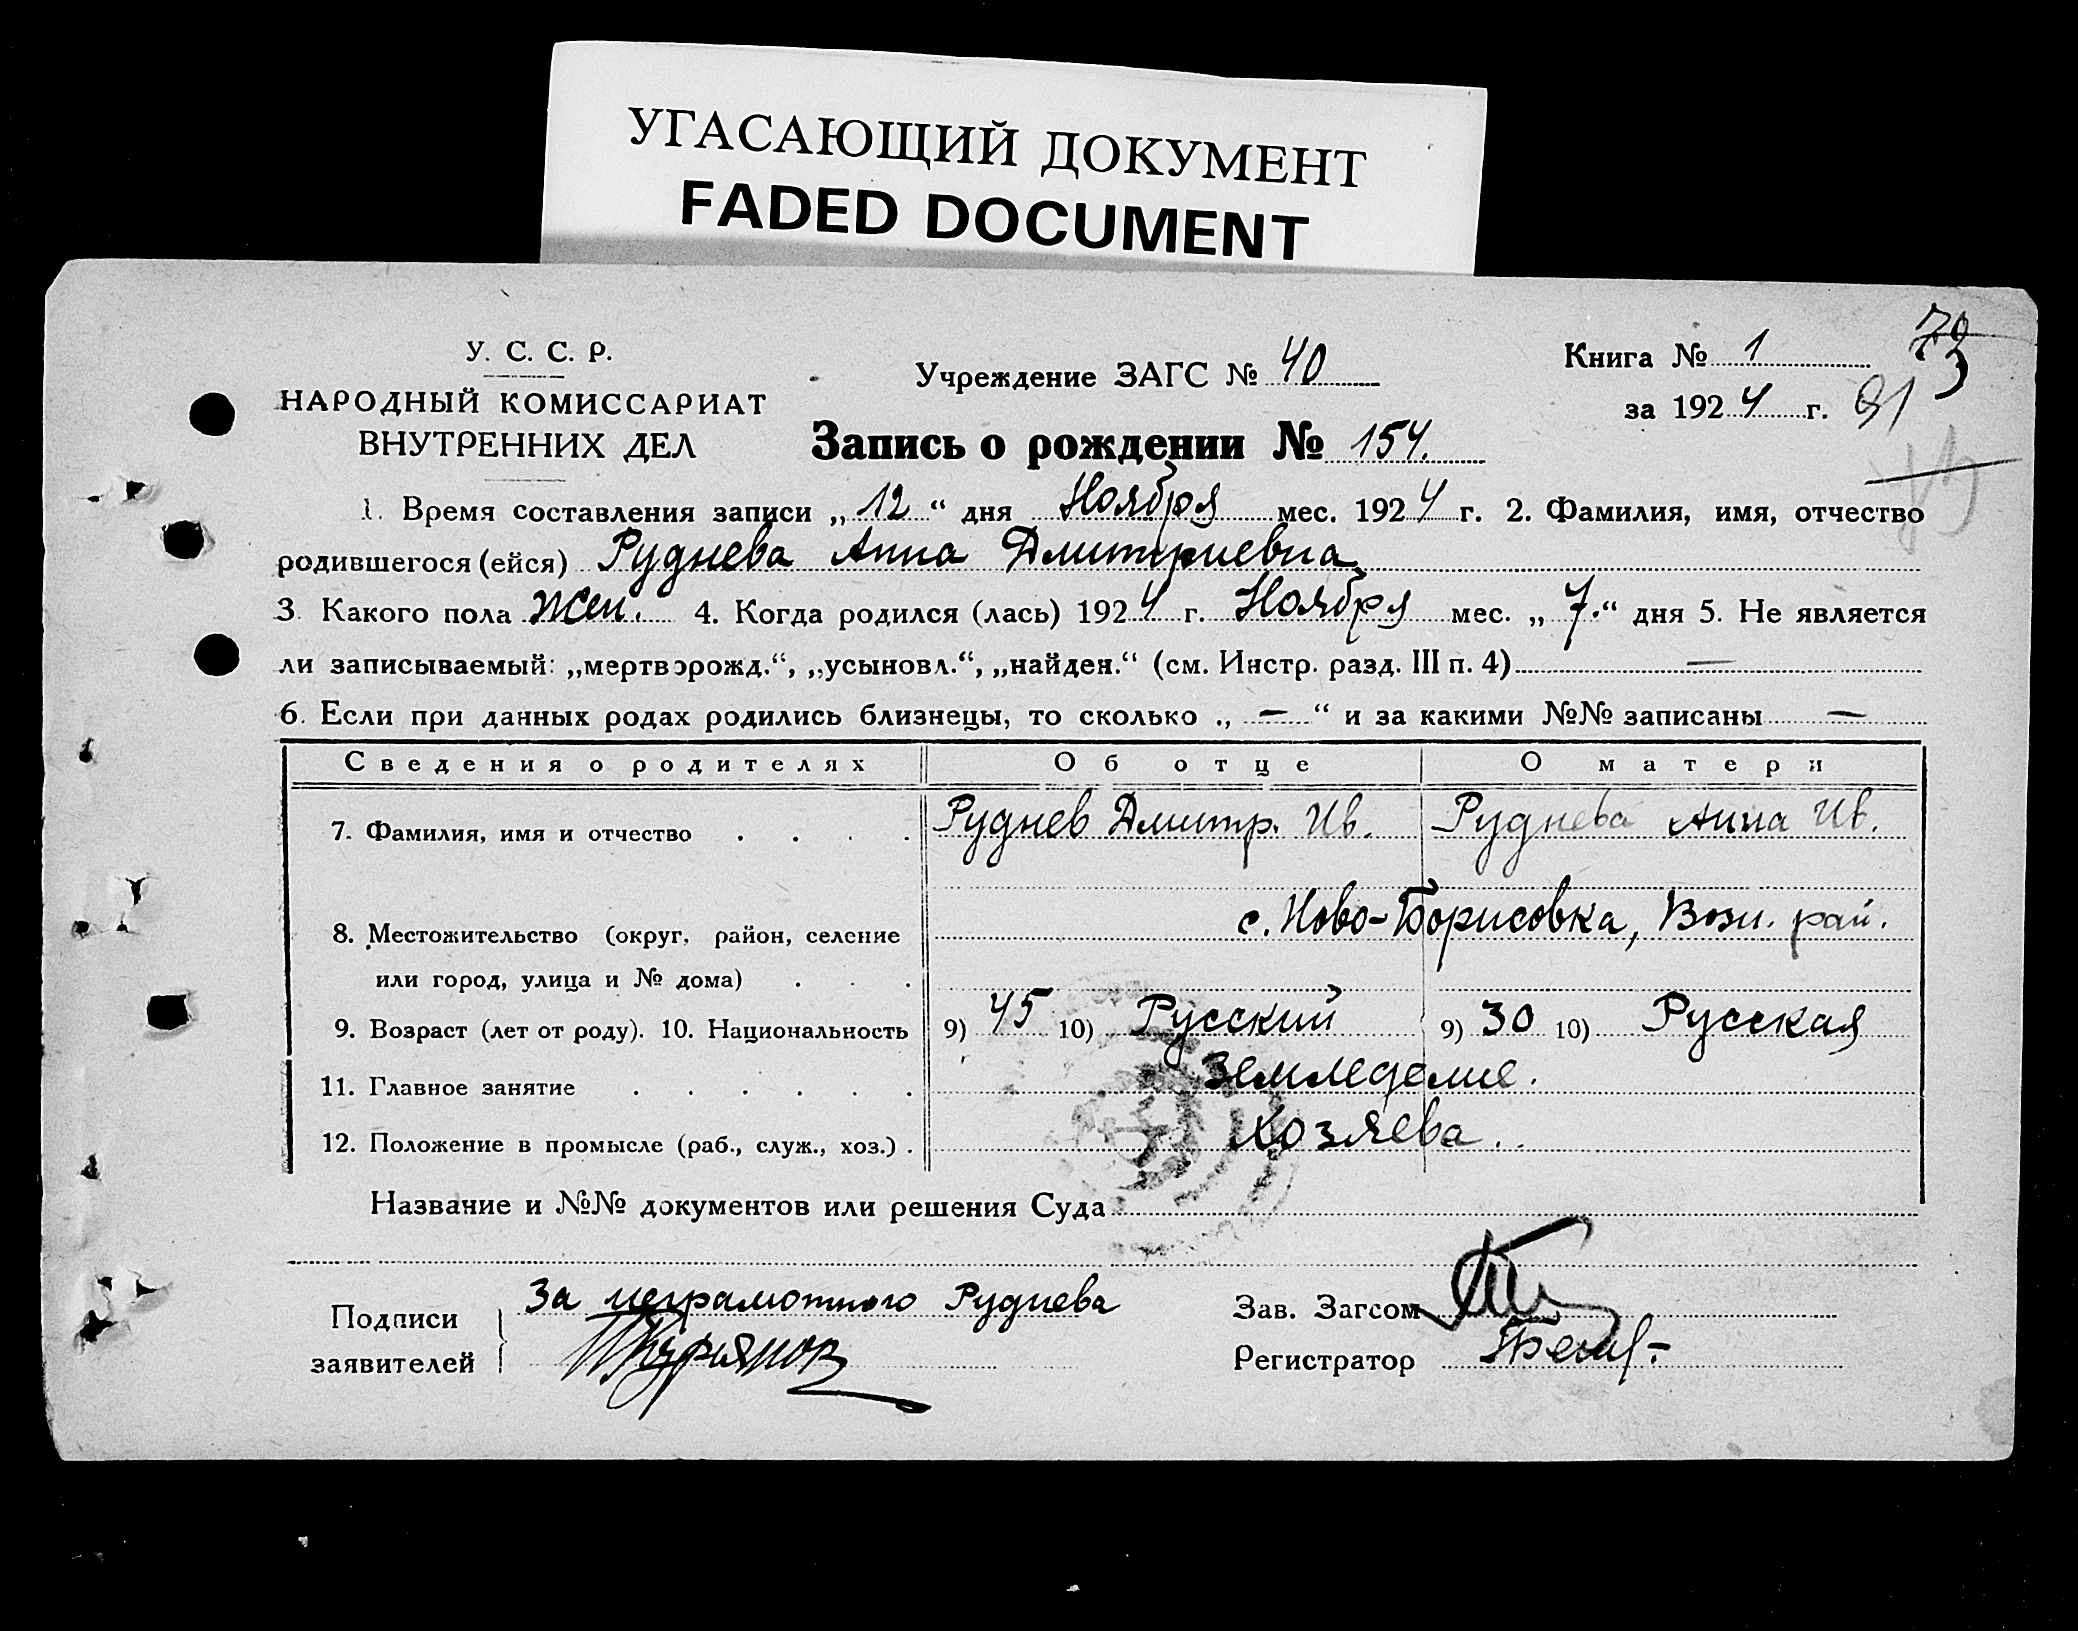 УГАСАЮЩИЙ ДОКУМЕНТ
FADED DOCUMENT
У. С. С. Р.
НАРОДНЫЙ КОМИССАРИАТ
ВНУТРЕННИХ ДЕЛ
Учреждение ЗАГС № 40
Книга № 1
73
за 1924 г.
91
Запись о рождении № 154.
1. Время составления записи „12“ дня Ноября мес. 1924 г. 2. Фамилия, имя, отчество
родившегося (ейся) Руднева Анна Дмитриевна
3. Какого пола Жен. 4. Когда родился (лась) 1924 г. Ноября мес. „7.“ дня 5. Не является
ли записываемый: „мертворожд.“, „усыновл.“, „найден.“ (см. Инстр. разд. III п. 4) —
6. Если при данных родах родились близнецы, то сколько „ — “ и за какими №№ записаны —
Сведения о родителях Об отце О матери
7. Фамилия, имя и отчество . . . . Руднев Дмитр. Ив. Руднева Анна Ив.
8. Местожительство (округ, район, селение с. Ново-Борисовка, Возн. рай.
или город, улица и № дома) . . .
9. Возраст (лет от роду). 10. Национальность 9) 45 10) Русский 9) 30 10) Русская
11. Главное занятие . . . . . . Земледелие.
12. Положение в промысле (раб., служ., хоз.) . Хозяева.
Название и №№ документов или решения Суда
Подписи
заявителей
За неграмотного Руднева
Зав. Загсом
Регистратор